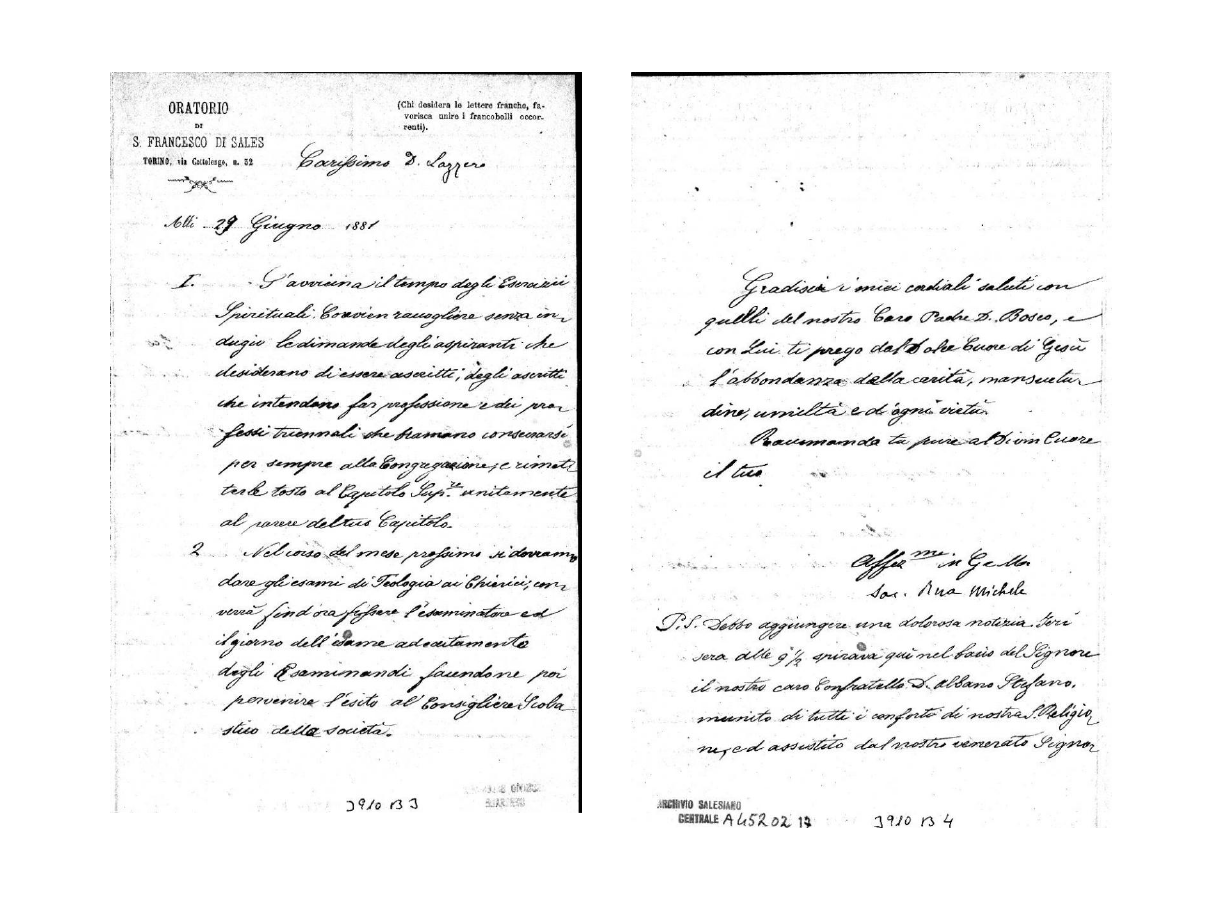 ORATORIO
DI
S. FRANCESCO DI SALES
TORINO, via Cottolengo, n. 32
(Chi desidera le lettere franche, fa-
verisca unire i francobolli occor-
renti).
Carissimo D. Lazzero
Alli 29 Giugno 1881
I. S'avvicina il tempo degli Esercizii
Spirituali. Convien raccogliere senza in-
dugio le dimande degli aspiranti che
desiderano di essere ascritti, degli ascritti
che intendono far professione e dei pro-
fessi triennali che bramano consecrarsi
per sempre alla Congregazione, e rimet-
terle tosto al Capitolo Sup.re unitamente
al parere del tuo Capitolo.
2 Nel corso del mese prossimo si dovranno
dare gli esami di Teologia ai Chierici, con-
verrà find'ora fissare l'esaminatore ed
il giorno dell'esame ad eccitamento
degli Esaminandi facendone poi
pervenire l'esito al Consigliere Scola-
stico della società.
3910 B 3
Gradisci i miei cordiali saluti con
quelli del nostro Caro Padre D. Bosco, e
con Lui ti prego dal Dolce Cuore di Gesù
l'abbondanza della carità, mansuetu-
dine, umiltà e d'ogni virtù.
Raccomanda tu pure al Divin Cuore
il tuo
Affez.mo in G. e M.
Sac. Rua Michele
P.S. Debbo aggiungere una dolorosa notizia. Ieri
sera alle 9½ spirava qui nel bacio del Signore
il nostro caro Confratello D. Albano Stefano,
munito di tutti i conforti di nostra S. Religio-
ne, ed assistito dal nostro venerato Signor
ARCHIVIO SALESIANO
CENTRALE A 452 02 17
3910 B 4